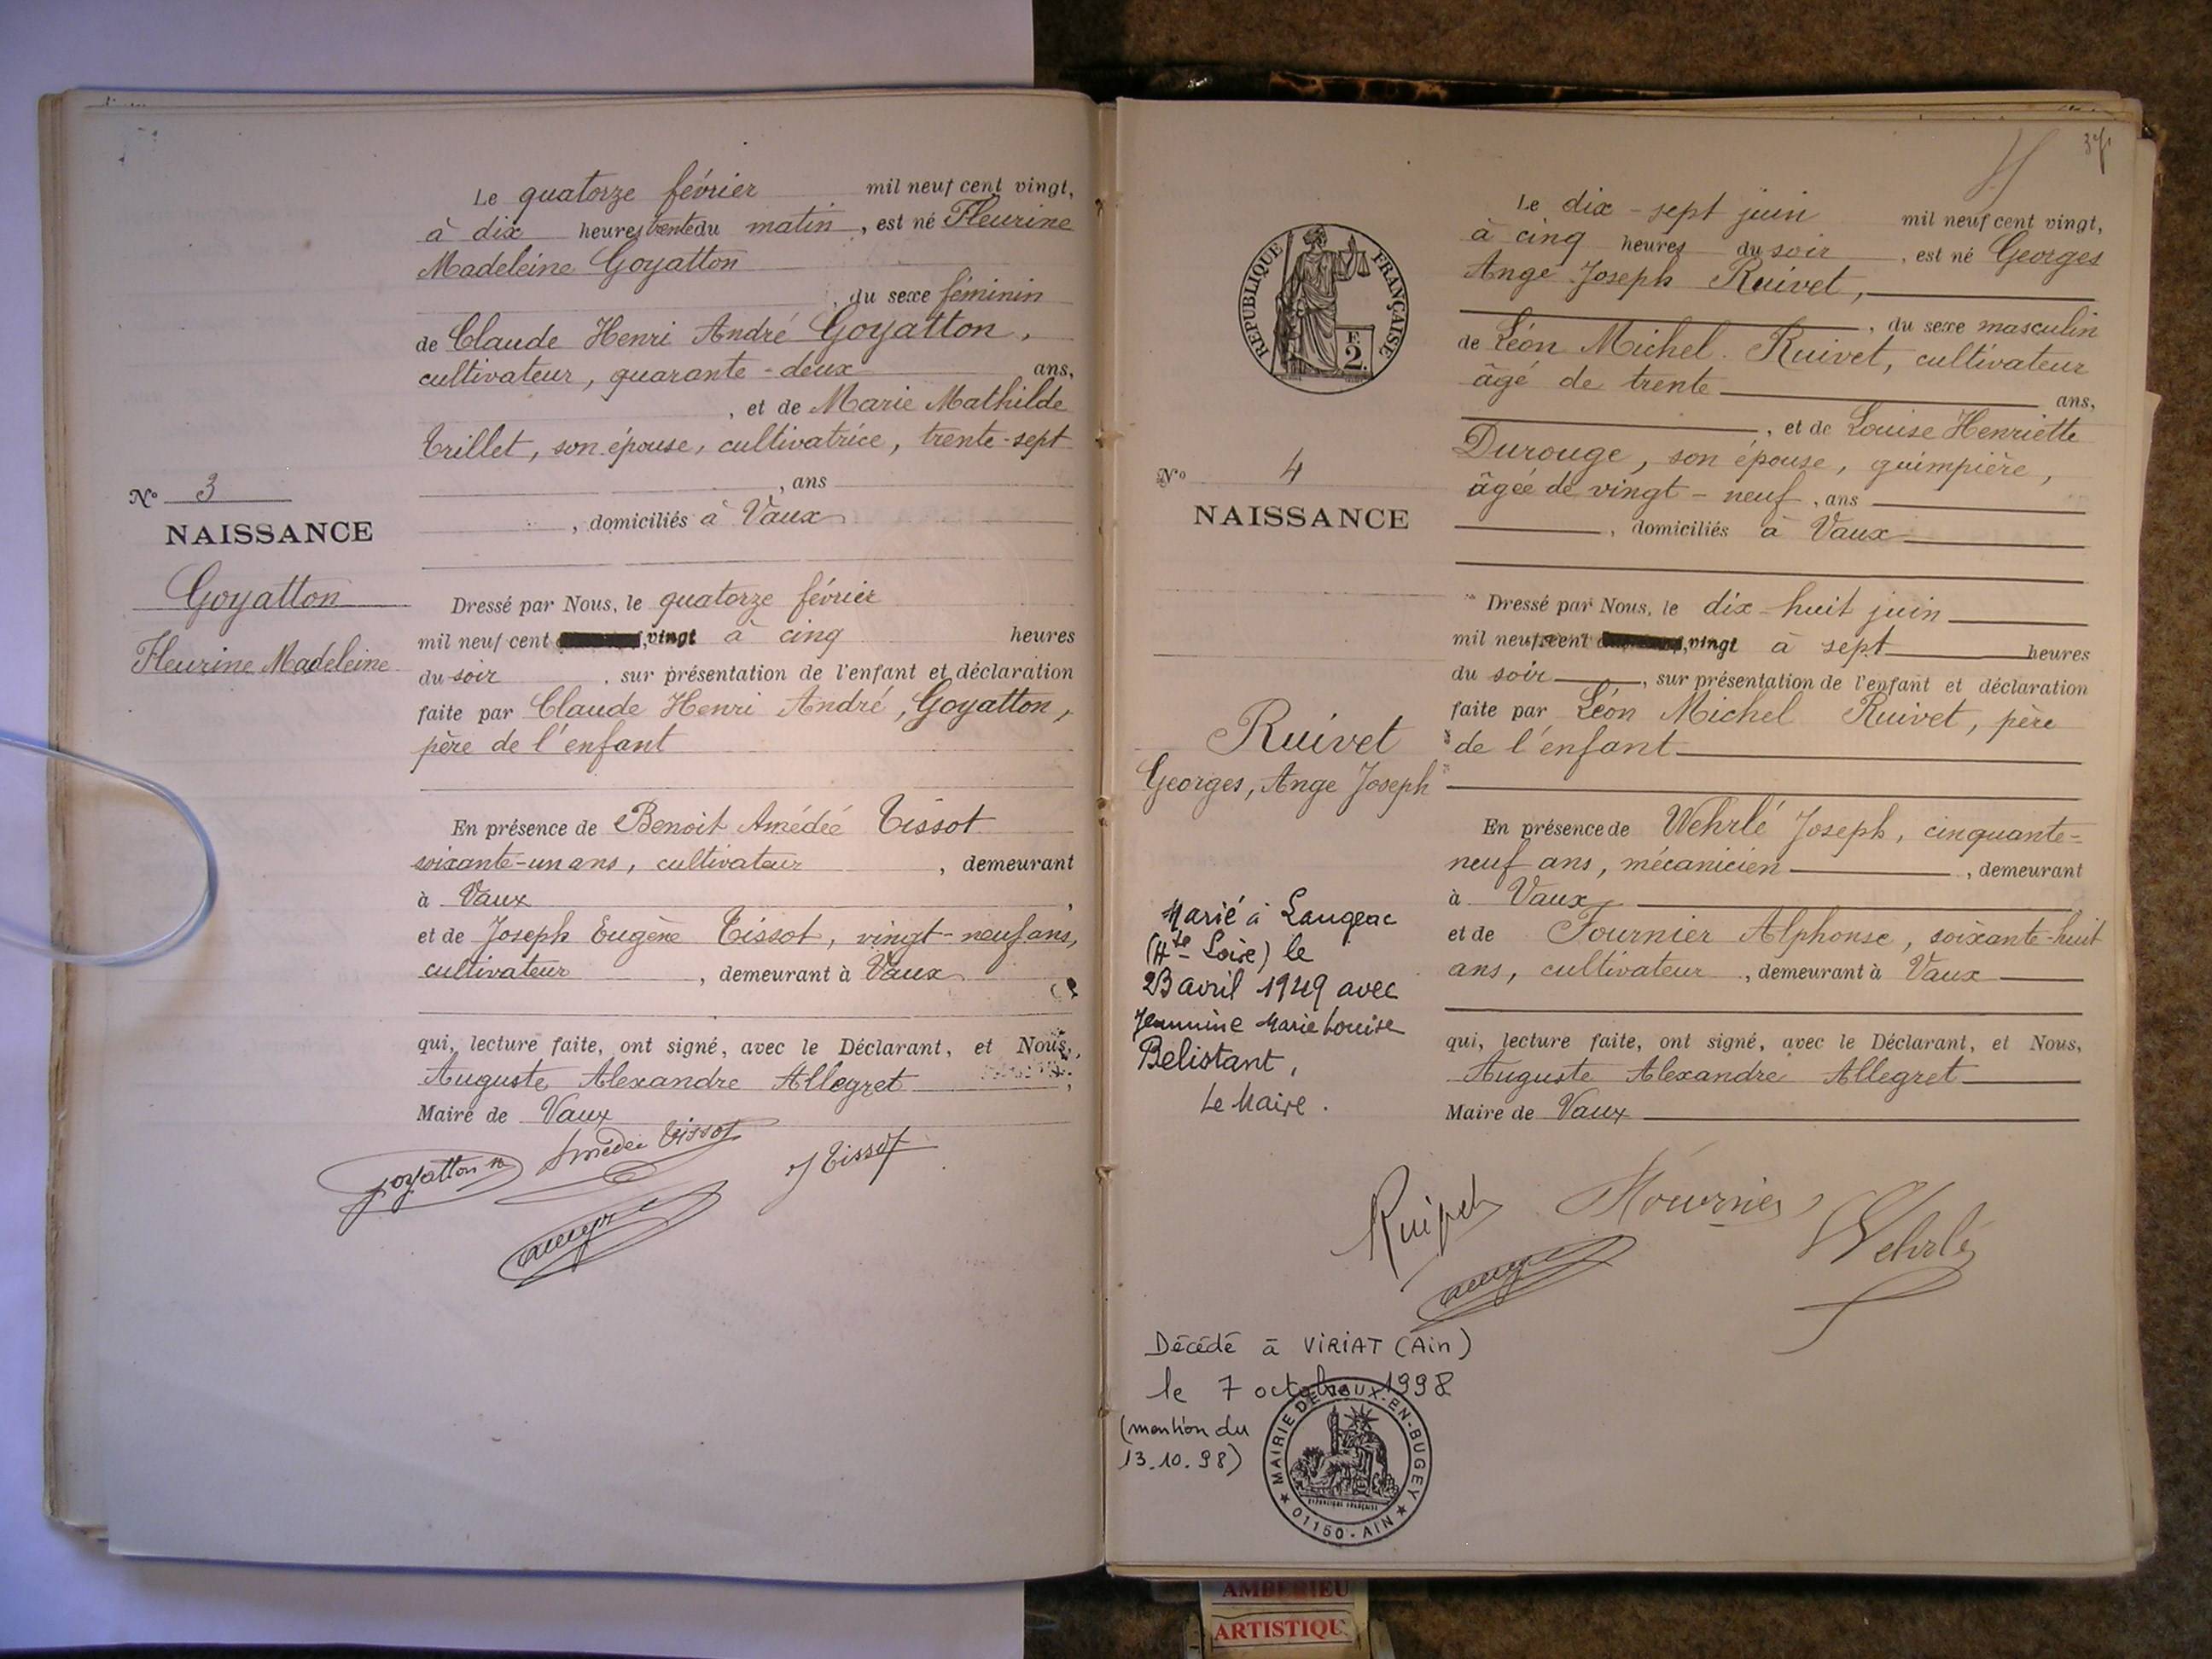 Le quatorze février mil neuf cent vingt,
à dix heures trente du matin, est né Fleurine
Madeleine Goyatton
, du sexe féminin
de Claude Henri André Goyatton,
cultivateur, quarante-deux ans,
, et de Marie Mathilde
Trillet, son épouse, cultivatrice, trente-sept
, ans
, domiciliés à Vaux
N° 3
NAISSANCE
Goyatton
Fleurine Madeleine
Dressé par Nous, le quatorze février
mil neuf cent , vingt à cinq heures
du soir, sur présentation de l'enfant et déclaration
faite par Claude Henri André, Goyatton,
père de l'enfant
En présence de Benoit Amédée Tissot
soixante-un ans, cultivateur, demeurant
à Vaux,
et de Joseph Eugène Tissot, vingt-neuf ans,
cultivateur, demeurant à Vaux
qui, lecture faite, ont signé, avec le Déclarant, et Nous,
Auguste Alexandre Allegret,
Maire de Vaux
Goyatton
Amédée Tissot
J Tissot
37
Le dix-sept juin mil neuf cent vingt,
à cinq heures du soir, est né Georges
Ange Joseph Ruivet,
, du sexe masculin
de Léon Michel Ruivet, cultivateur
âgé de trente ans,
, et de Louise Henriette
Durouge, son épouse, guimpière,
âgée de vingt-neuf, ans
, domiciliés à Vaux
RÉPUBLIQUE FRANÇAISE
E
2.
N° 4
NAISSANCE
Ruivet
Georges, Ange Joseph
Dressé par Nous, le dix-huit juin
mil neuf cent , vingt à sept heures
du soir, sur présentation de l'enfant et déclaration
faite par Léon Michel Ruivet, père
de l'enfant
En présence de Wehrlé Joseph, cinquante-
neuf ans, mécanicien, demeurant
à Vaux,
et de Fournier Alphonse, soixante-huit
ans, cultivateur, demeurant à Vaux
qui, lecture faite, ont signé, avec le Déclarant, et Nous,
Auguste Alexandre Allegret
Maire de Vaux
Marié à Langeac
(Hte-Loire) le
23 avril 1949 avec
Jeannine Marie Louise
Belistant,
Le Maire.
Ruivet
Fournier
Wehrlé
Décédé à VIRIAT (Ain)
le 7 octobre 1998
(mention du
13.10.98)
MAIRIE DE VAUX-EN-BUGEY
RÉPUBLIQUE FRANÇAISE
★ 01150 - AIN ★
AMBERIEU
ARTISTIQU